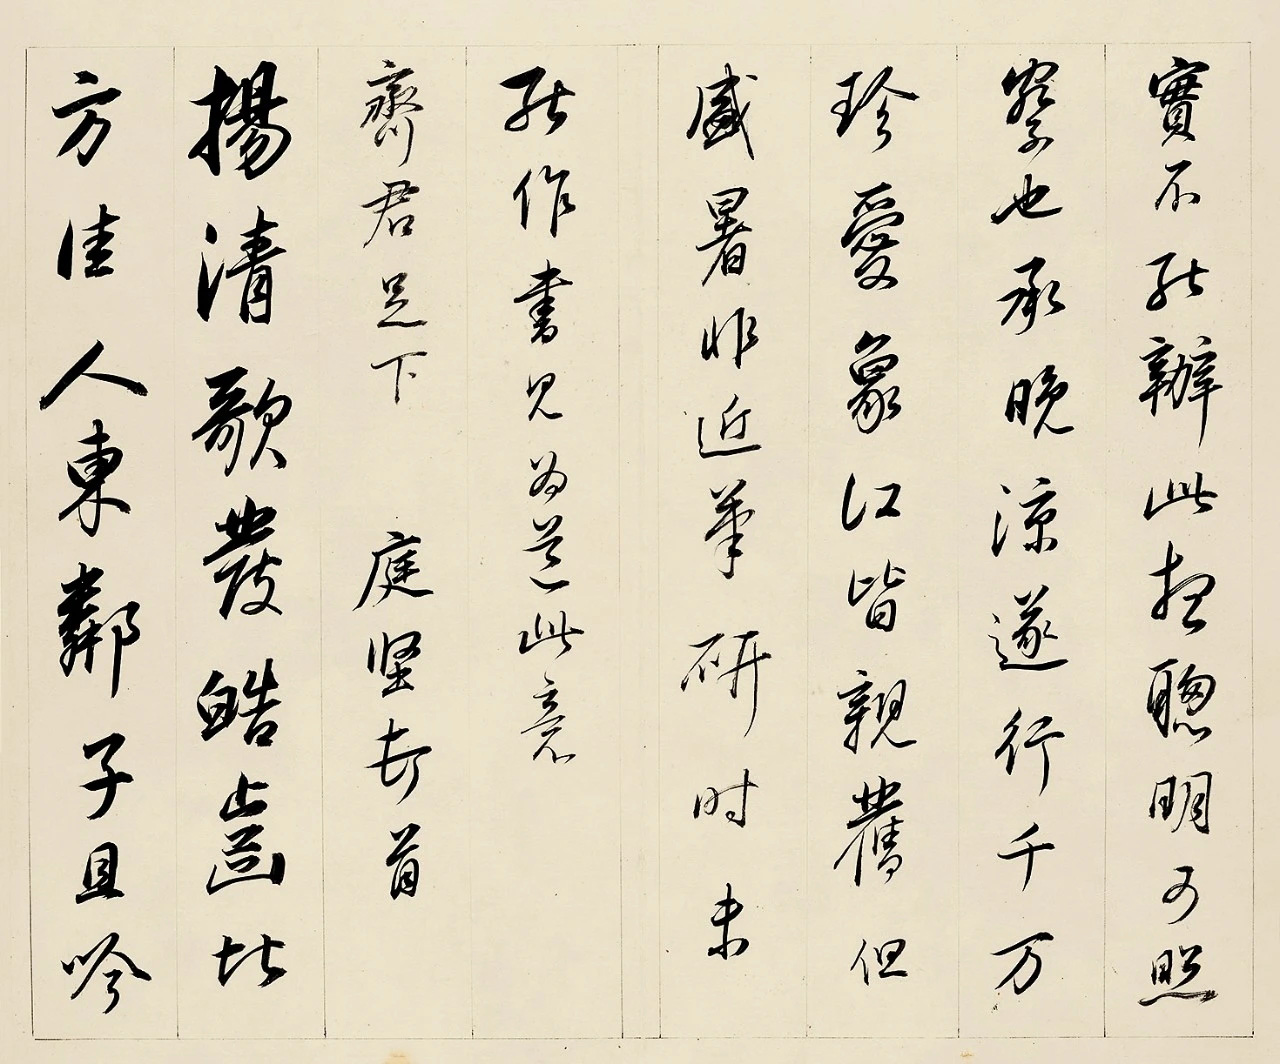 實不能辦此想聰明可照
察也承晚涼遂行千万
珍愛象江皆親舊但
盛暑非近筆研时未
能作書見为道此意
齊君足下 庭坚頓首
揚清歌發皓齒北
方佳人東鄰子且吟